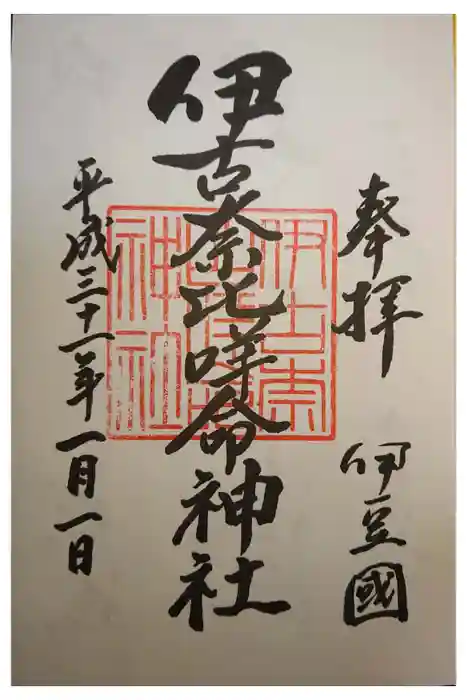 奉拝
伊豆國
伊古奈比咩命神社
平成三十一年一月一日
伊古奈
神社